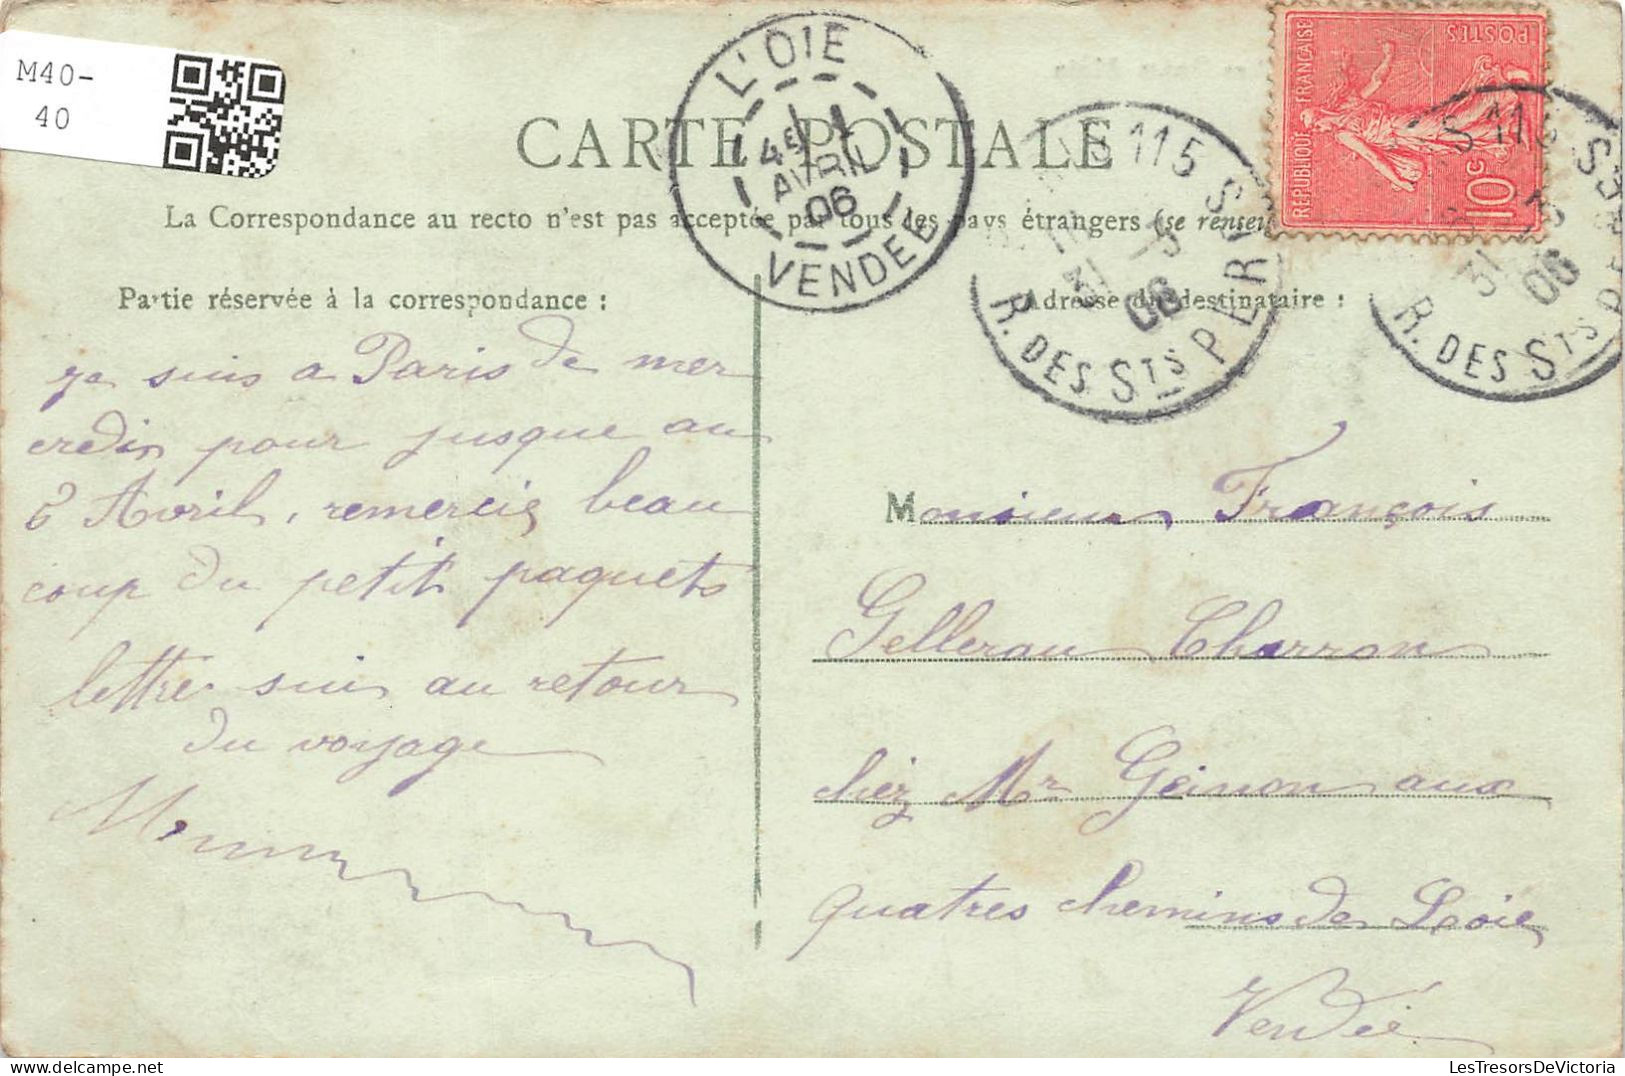 M40-
40
L'OIE
4E 1
AVRIL
06
VENDEE
CARTE POSTALE
La Correspondance au recto n'est pas acceptée par tous les pays étrangers (se rensei
REPUBLIQUE FRANÇAISE
POSTES
10c
S 115
31 -3
06
R. DES STS PER
S 115
31 3
06
R. DES STS PE
Partie réservée à la correspondance :
ge suis a Paris de mer
credis pour jusque au
6 Avril, remercis beau
coup du petit paquets
lettre suis au retour
du voyage
Adresse du destinataire :
Monsieur François
Gelleran Charron
chez Mr Geinon aux
quatres chemins de Loie
Vendée
LesTresorsDeVictoria